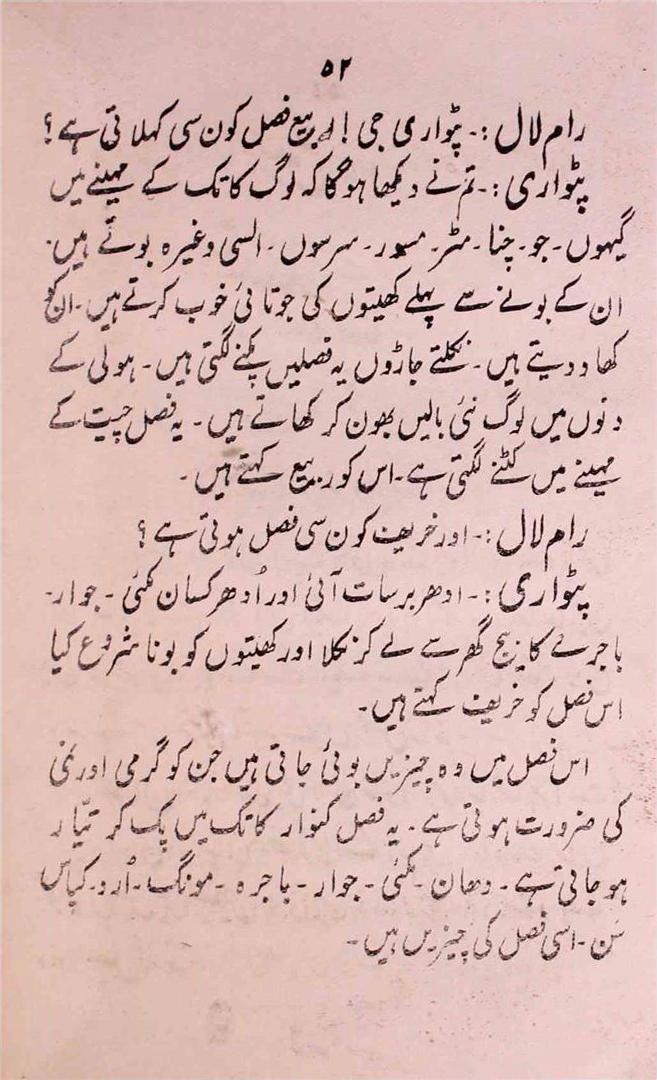 ۵۲
رام لال :۔ پٹواری جی ! ربیع فصل کون سی کہلاتی ہے ؟
پٹواری :۔ تم نے دیکھا ہوگا کہ لوگ کاتک کے مہینے میں
گیہوں ۔ جو ۔ چنا ۔ مٹر ۔ مسور ۔ سرسوں ۔ السی وغیرہ بوتے ہیں ۔
ان کے بونے سے پہلے کھیتوں کی جوتائی خوب کرتے ہیں ۔ ان کو
کھاد دیتے ہیں ۔ نکلتے جاڑوں یہ فصلیں پکنے لگتی ہیں ۔ ہولی کے
دنوں میں لوگ نئی بالیں بھون کر کھاتے ہیں ۔ یہ فصل چیت کے
مہینے میں کٹنے لگتی ہے ۔ اس کو ربیع کہتے ہیں ۔
رام لال :۔ اور خریف کون سی فصل ہوتی ہے ؟
پٹواری :۔ ادھر برسات آئی اور اُدھر کسان مکئی ۔ جوار ۔
باجرے کا بیج گھر سے لے کر نکلا اور کھیتوں کو بونا شروع کیا
اس فصل کو خریف کہتے ہیں ۔
اس فصل میں وہ چیزیں بوئی جاتی ہیں جن کو گرمی اور نمی
کی ضرورت ہوتی ہے ۔ یہ فصل کنوار کاتک میں پک کر تیّار
ہو جاتی ہے ۔ دھان ۔ مکئی ۔ جوار ۔ باجرہ ۔ مونگ ۔ اُرد ۔ کپاس
سَن ۔ اسی فصل کی چیزیں ہیں ۔